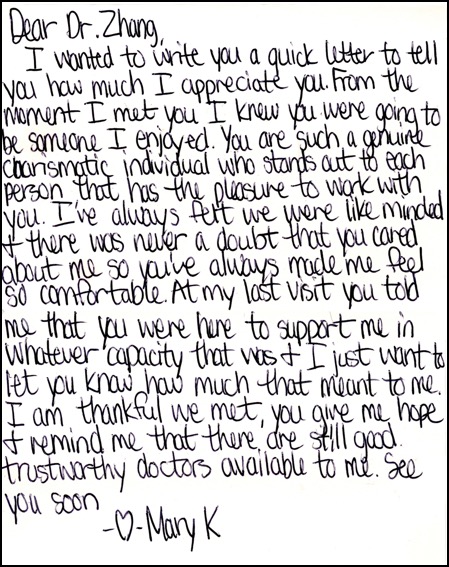 Dear Dr. Zhang,
I wanted to write you a quick letter to tell
you how much I appreciate you. From the
moment I met you I knew you were going to
be someone I enjoyed. You are such a genuine
charismatic individual who stands out to each
person that has the pleasure to work with
you. I've always felt we were like minded
+ there was never a doubt that you cared
about me so you've always made me feel
so comfortable. At my last visit you told
me that you were here to support me in
whatever capacity that was + I just want to
let you know how much that meant to me.
I am thankful we met, you give me hope
+ remind me that there are still good
trustworthy doctors available to me. See
you soon
-♡- Mary K